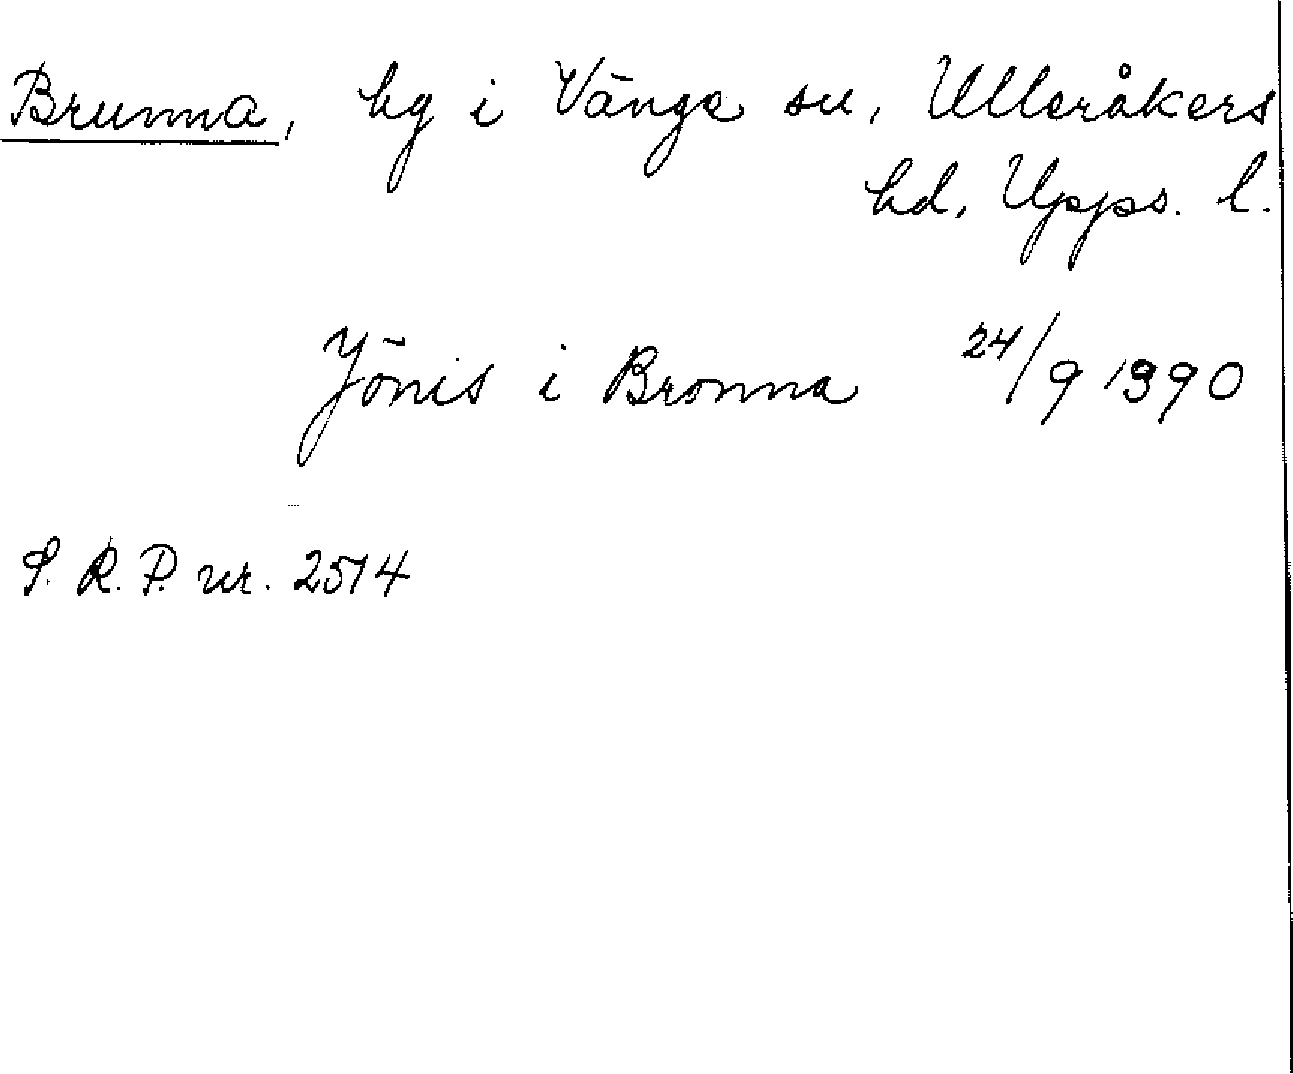 Brunna, by i Vänge sn, Ulleråkers
hd, Upps. l.
Jönis i Bronna 24/9 1390
S. R. P. nr. 2514